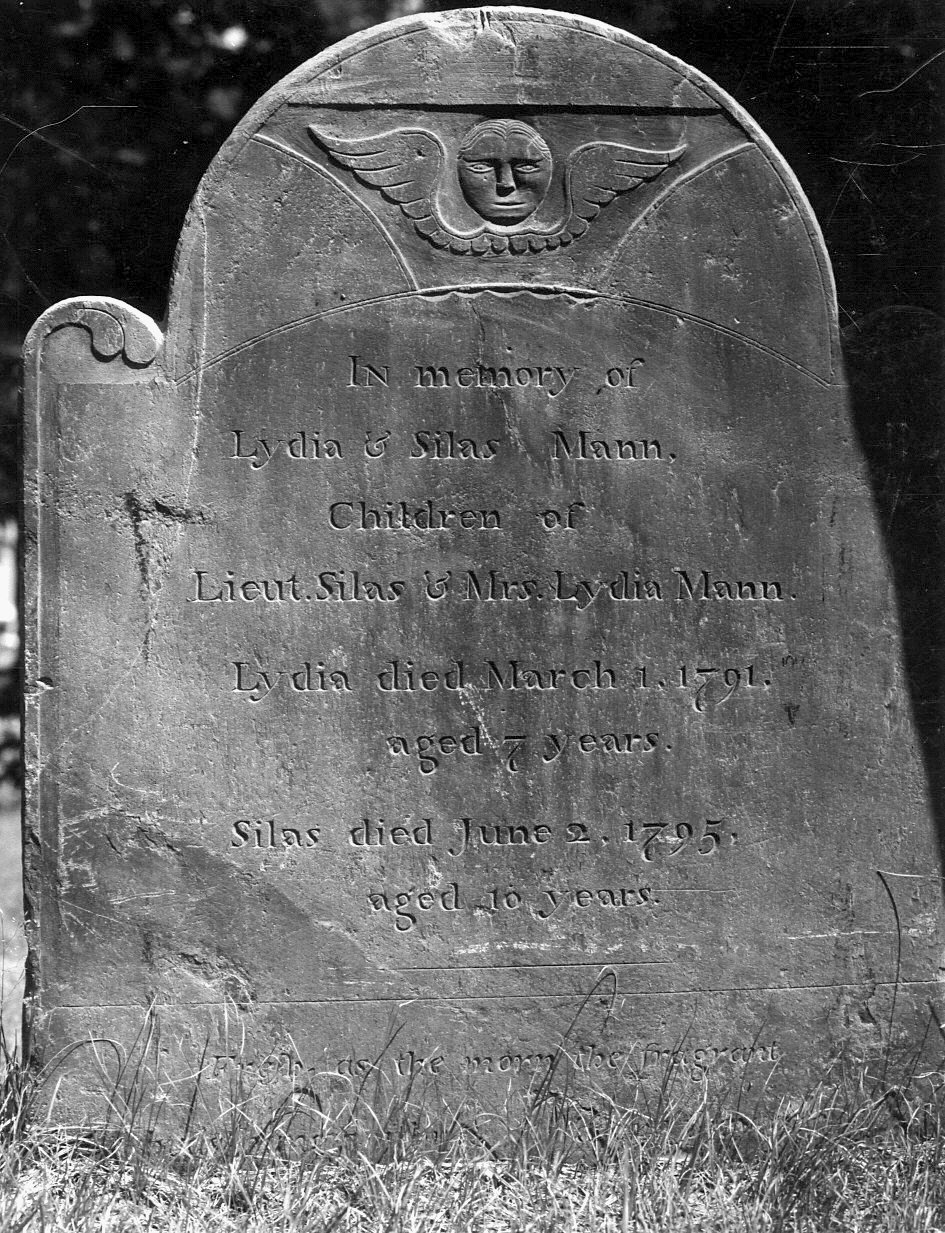 In memory of
Lydia & Silas Mann,
Children of
Lieut. Silas & Mrs. Lydia Mann.
Lydia died March 1, 1791,
aged 7 years.
Silas died June 2, 1795,
aged 10 years.
as the morn the fragrant